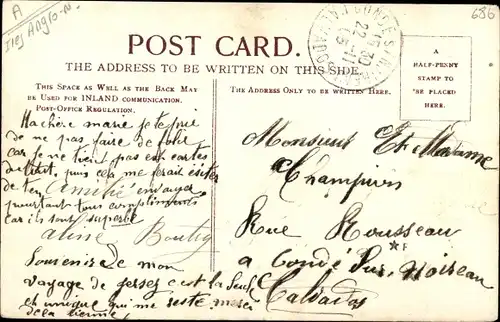 A
Iles Anglo-N.
686
POST CARD.
THE ADDRESS TO BE WRITTEN ON THIS SIDE.
THIS SPACE AS WELL AS THE BACK MAY
BE USED FOR INLAND COMMUNICATION.
POST-OFFICE REGULATION.
THE ADDRESS ONLY TO BE WRITTEN HERE.
A
HALF-PENNY
STAMP TO
BE PLACED
HERE.
22-11
CALVADOS
Ma chère marie je te prie
de ne pas faire de folie
car Je ne tient pas est cartes
puis cela me ferait
de ten Amitié envoyer
pourtant tous compliments
car ils sont superbe
aline
Souvenir de mon
voyage de jersey c'est la seule
et unique qui me reste merci
de la tienne
Monsieur Et Madame
Champion
Rue Rousseau
F
a Condé sur Noireau
Calvados